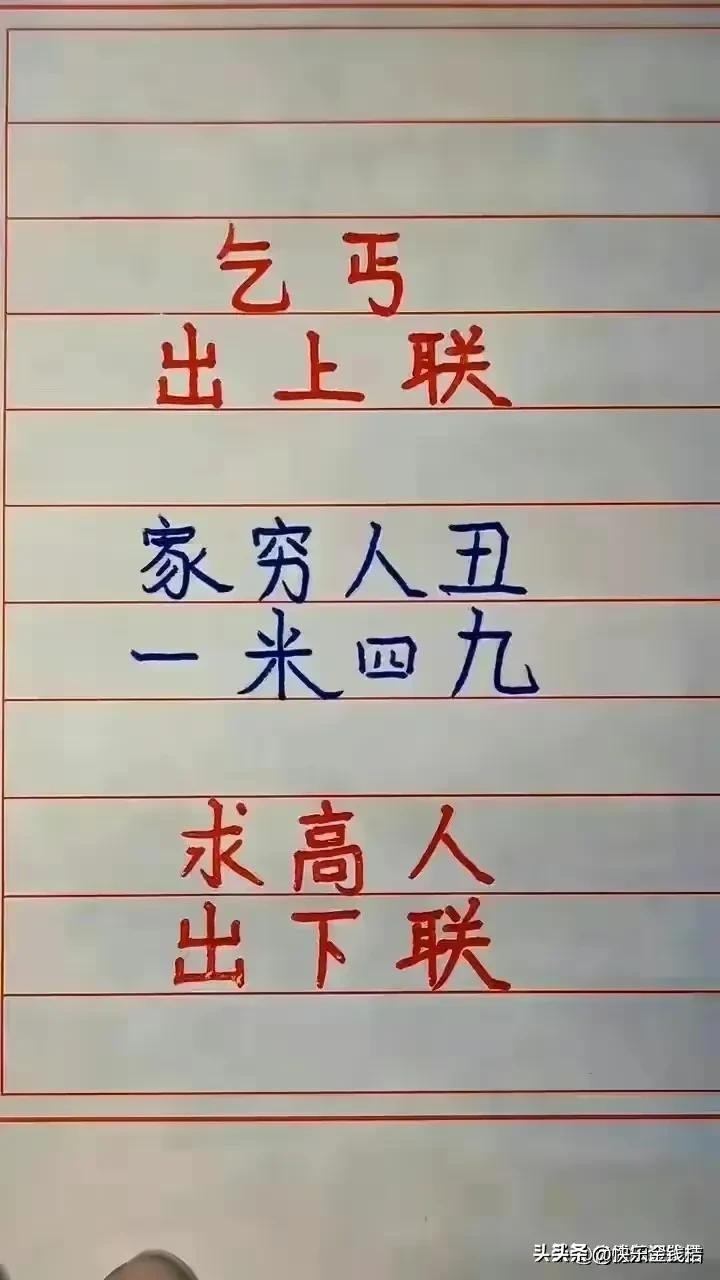 乞丐
出上联
家穷人丑
一米四九
求高人
出下联
头条 @快乐金钱桔